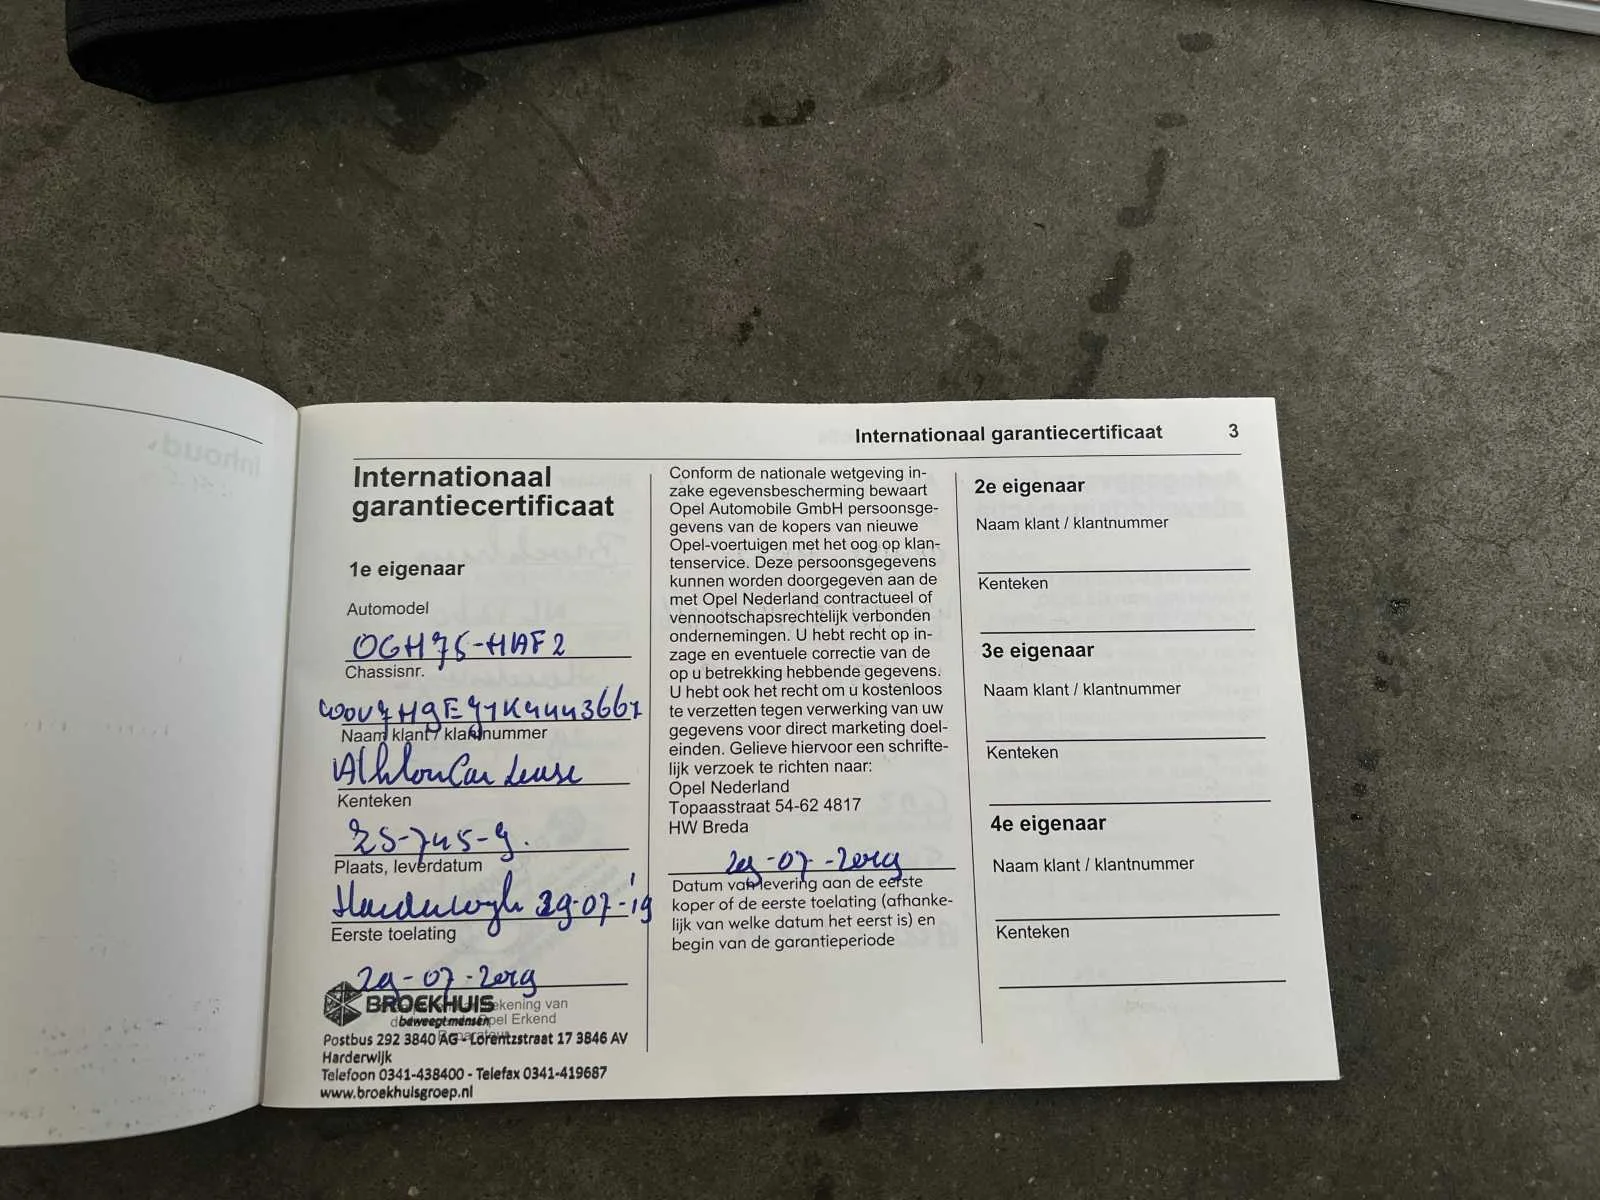 Internationaal garantiecertificaat 3
Internationaal
garantiecertificaat
1e eigenaar
Automodel
OGH75-HAF2
Chassisnr.
Naam klant / klantnummer
Athlon Car Lease
Kenteken
Plaats, leverdatum
Harderwijk 29-07-'19
Eerste toelating
29-07-2019
BROEKHUIS
beweegt mensen
ekening van
pel Erkend
Postbus 292 3840 AG - Lorentzstraat 17 3846 AV
Harderwijk
Telefoon 0341-438400 - Telefax 0341-419687
www.broekhuisgroep.nl
Conform de nationale wetgeving in-
zake egevensbescherming bewaart
Opel Automobile GmbH persoonsge-
gevens van de kopers van nieuwe
Opel-voertuigen met het oog op klan-
tenservice. Deze persoonsgegevens
kunnen worden doorgegeven aan de
met Opel Nederland contractueel of
vennootschapsrechtelijk verbonden
ondernemingen. U hebt recht op in-
zage en eventuele correctie van de
op u betrekking hebbende gegevens.
U hebt ook het recht om u kostenloos
te verzetten tegen verwerking van uw
gegevens voor direct marketing doel-
einden. Gelieve hiervoor een schrifte-
lijk verzoek te richten naar:
Opel Nederland
Topaasstraat 54-62 4817
HW Breda
29-07-2019
Datum van levering aan de eerste
koper of de eerste toelating (afhanke-
lijk van welke datum het eerst is) en
begin van de garantieperiode
2e eigenaar
Naam klant / klantnummer
Kenteken
3e eigenaar
Naam klant / klantnummer
Kenteken
4e eigenaar
Naam klant / klantnummer
Kenteken